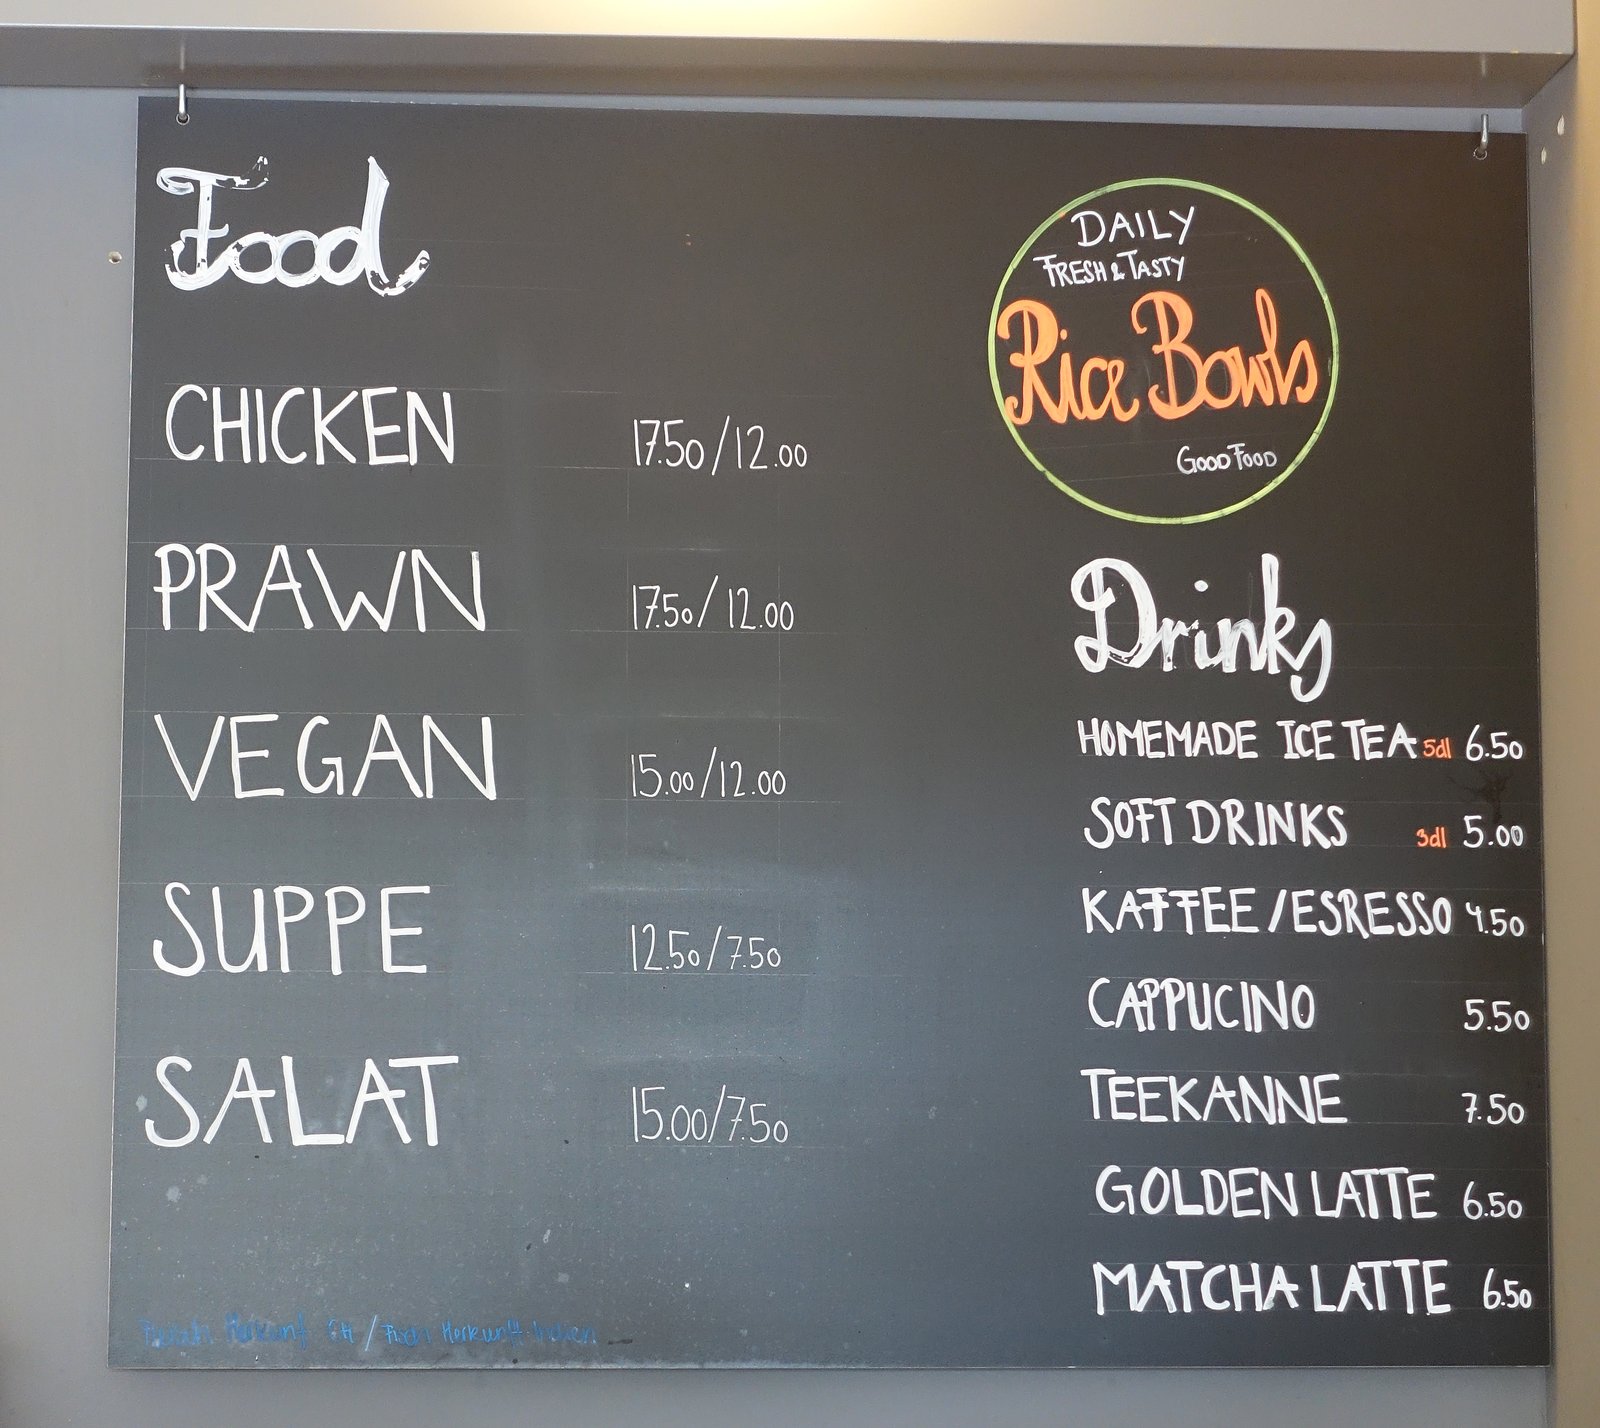 Food
CHICKEN 17.50/12.00
PRAWN 17.50/12.00
VEGAN 15.00/12.00
SUPPE 12.50/7.50
SALAT 15.00/7.50
Herkunf CH / Herkunft Indien
DAILY
FRESH & TASTY
Rice Bowls
GOOD FOOD
Drinks
HOMEMADE ICE TEA 5dl 6.50
SOFT DRINKS 3dl 5.00
KAFFEE/ESRESSO 4.50
CAPPUCINO 5.50
TEEKANNE 7.50
GOLDEN LATTE 6.50
MATCHA LATTE 6.50